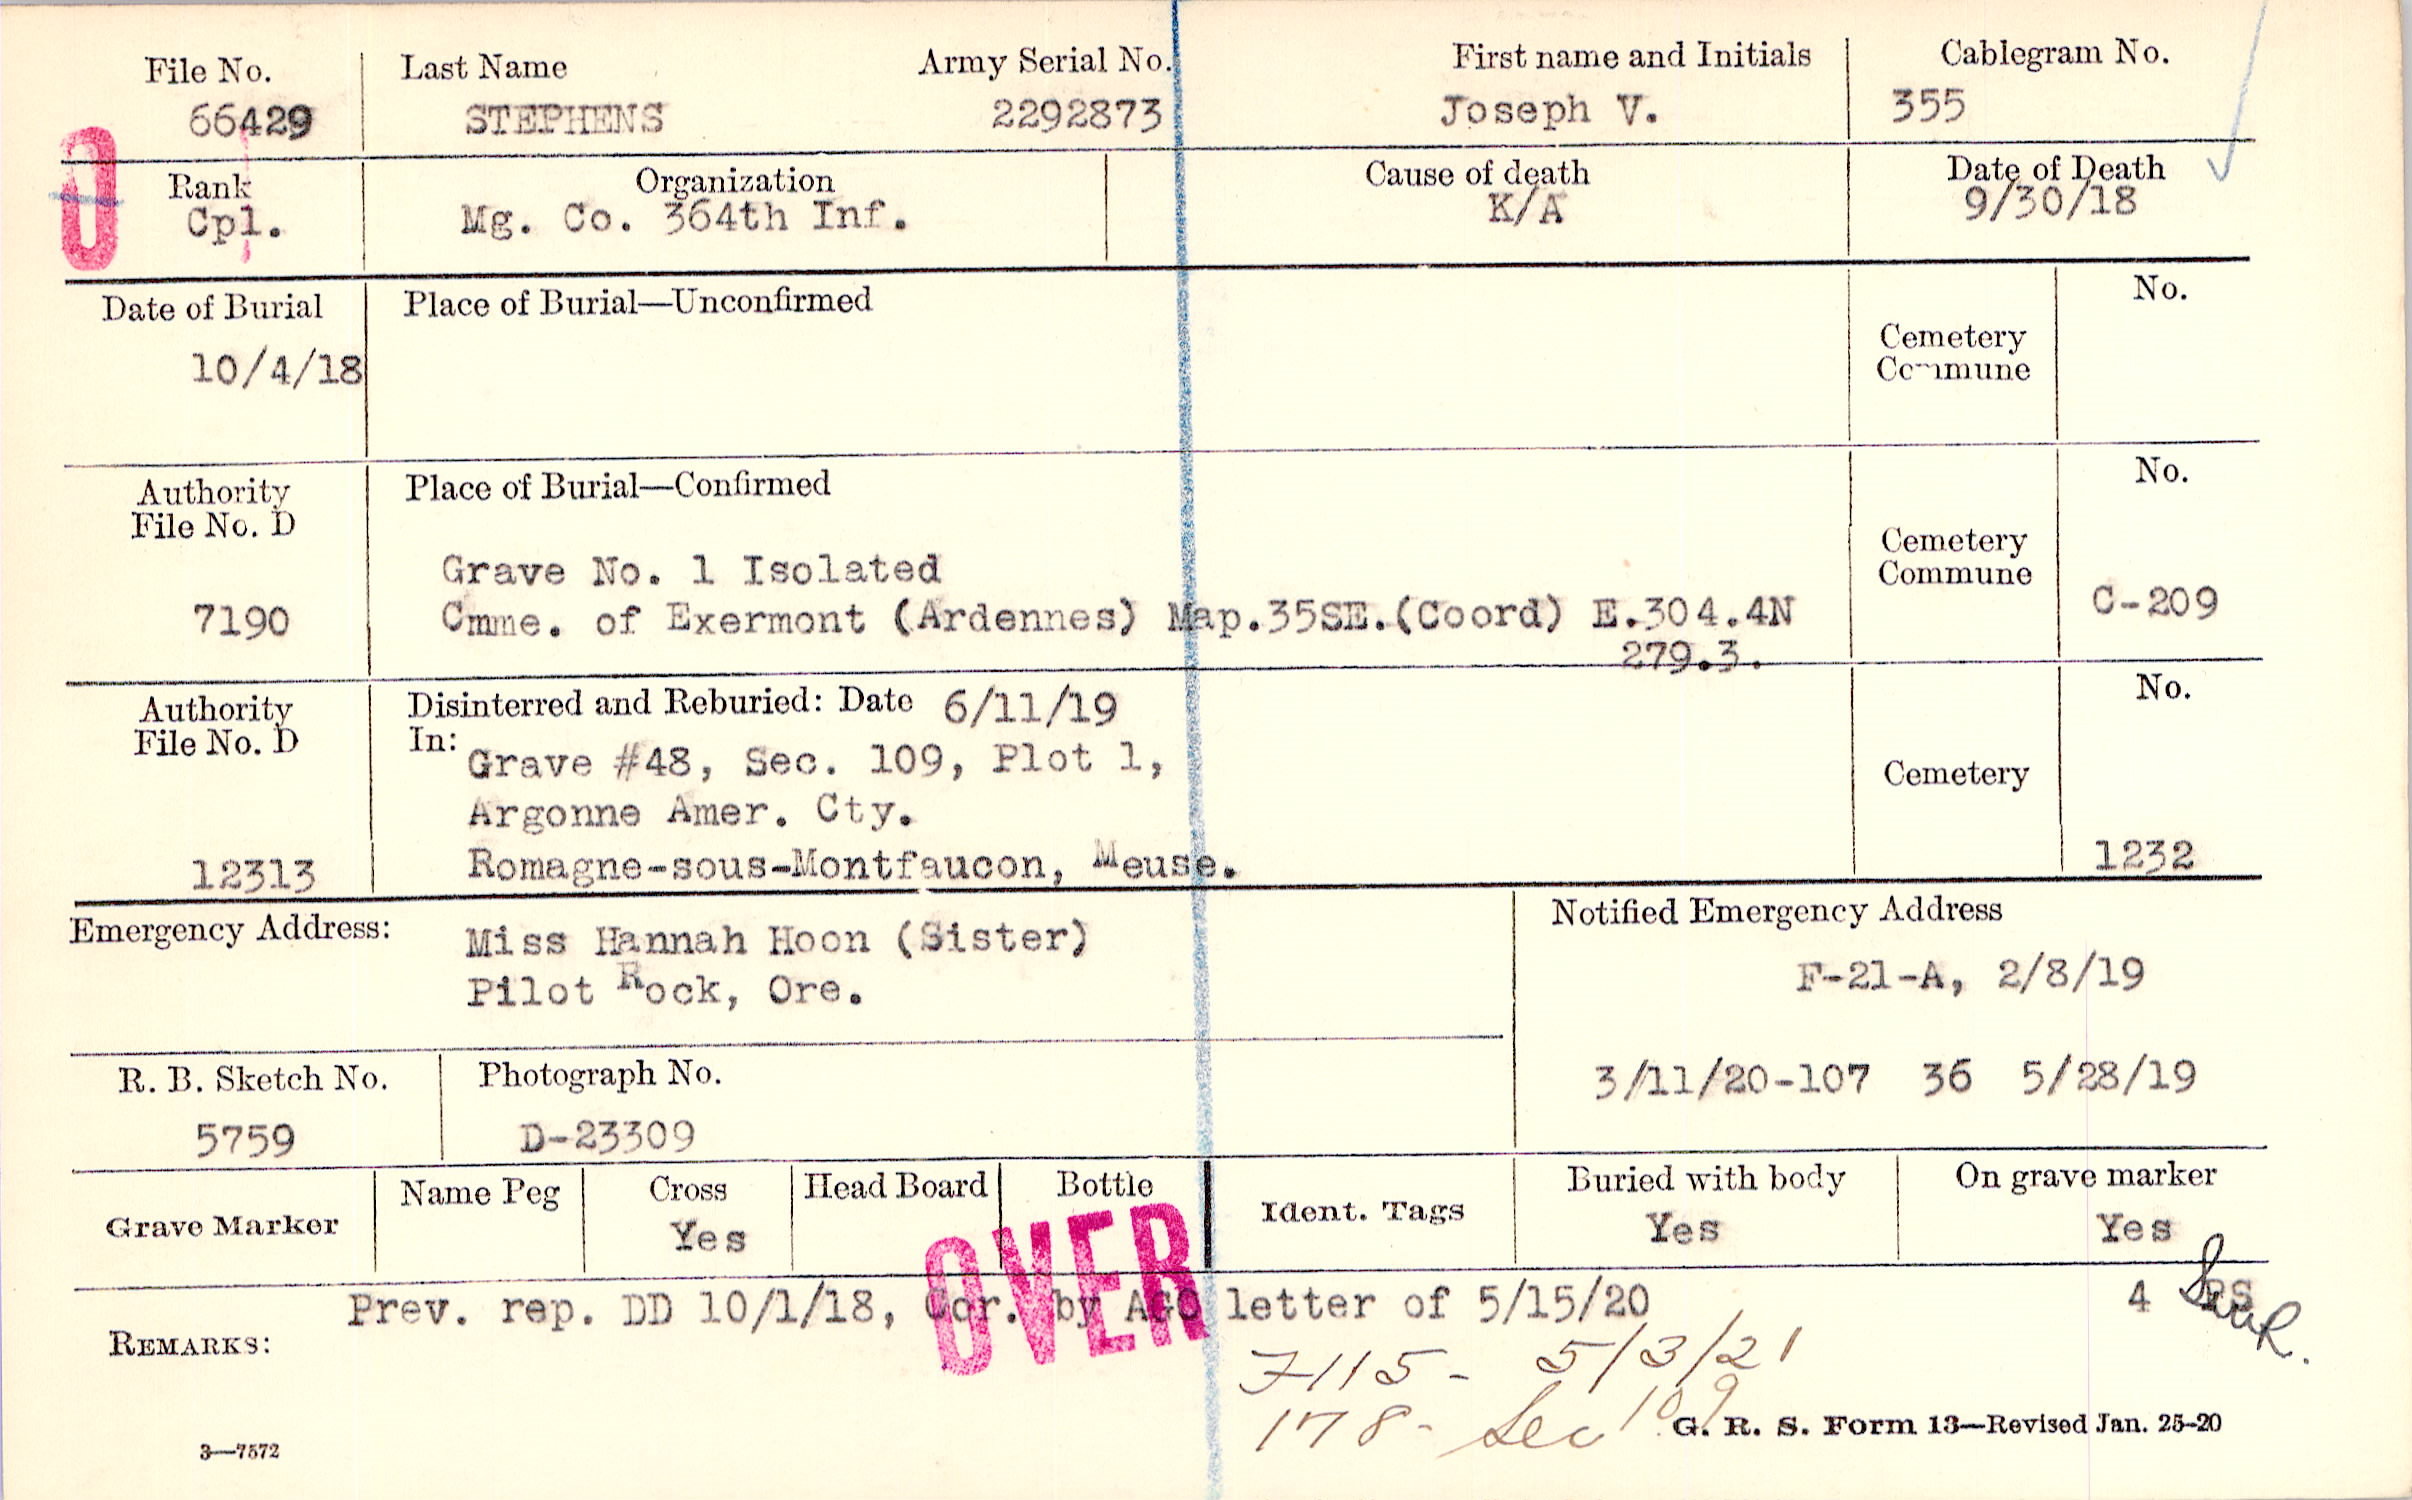 File No. Last Name Army Serial No. First name and Initials Cablegram No.
66429 STEPHENS 2292873 Joseph V. 355
O
Rank Organization Cause of death Date of Death
Cpl. Mg. Co. 364th Inf. K/A 9/30/18
Date of Burial Place of Burial—Unconfirmed No.
10/4/18
Cemetery
Commune
Authority Place of Burial—Confirmed No.
File No. D
Cemetery
Commune
Grave No. 1 Isolated
7190 Cmme. of Exermont (Ardennes) Map.35SE.(Coord) E.304.4N C-209
279.3.
Authority Disinterred and Reburied: Date 6/11/19 No.
File No. D In:
Grave #48, Sec. 109, Plot 1, Cemetery
Argonne Amer. Cty.
12313 Romagne-sous-Montfaucon, Meuse. 1232
Emergency Address: Miss Hannah Hoon (Sister) Notified Emergency Address
Pilot Rock, Ore. F-21-A, 2/8/19
R. B. Sketch No. Photograph No. 3/11/20-107 36 5/28/19
5759 D-23309
Grave Marker Name Peg Cross Head Board Bottle Ident. Tags Buried with body On grave marker
Yes Yes Yes
OVER
Prev. rep. DD 10/1/18, Cor. by AGO letter of 5/15/20 4
REMARKS:
7115- 5/3/21
178- Sec 109
G. R. S. Form 13—Revised Jan. 25-20
3—7572